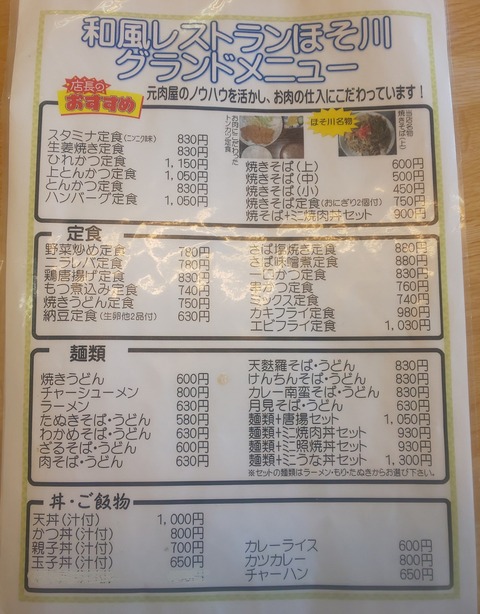 和風レストランほそ川
グランドメニュー
店長の
おすすめ
元肉屋のノウハウを活かし、お肉の仕入にこだわっています！
スタミナ定食(ニンニク味) 830円
生姜焼き定食 830円
ひれかつ定食 1,150円
上とんかつ定食 1,050円
とんかつ定食 830円
ハンバーグ定食 1,050円
お肉にこだわった
トンカツ定食
ほそ川名物
当店名物
焼きそば(上)
焼きそば(上) 600円
焼きそば(中) 500円
焼きそば(小) 450円
焼きそば定食(おにぎり2個付) 750円
焼そば+ミニ焼肉丼セット 900円
定食
野菜炒め定食 780円
ニラレバ定食 780円
鶏唐揚げ定食 830円
もつ煮込み定食 740円
焼きうどん定食 750円
納豆定食(生卵他2品付) 630円
さば塩焼き定食 880円
さば味噌煮定食 880円
一口かつ定食 830円
串かつ定食 760円
ミックス定食 740円
カキフライ定食 980円
エビフライ定食 1,030円
麺類
焼きうどん 600円
チャーシューメン 800円
ラーメン 630円
たぬきそば・うどん 580円
わかめそば・うどん 630円
ざるそば・うどん 600円
肉そば・うどん 630円
天麩羅そば・うどん 830円
けんちんそば・うどん 830円
カレー南蛮そば・うどん 830円
月見そば・うどん 630円
麺類+唐揚セット 1,050円
麺類+ミニ焼肉丼セット 930円
麺類+ミニ照焼丼セット 930円
麺類+ミニうな丼セット 1,300円
※セットの麺類はラーメン・もり・たぬきからお選び下さい。
丼・ご飯物
天丼(汁付) 1,000円
かつ丼(汁付) 800円
親子丼(汁付) 700円
玉子丼(汁付) 650円
カレーライス 600円
カツカレー 800円
チャーハン 650円